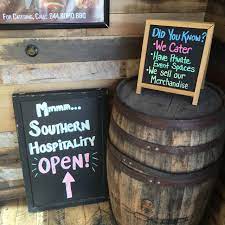 FOR CATERING, CALL: 244.BOMO BBQ
DID YOU KNOW?
• We CATER
• HAVE PRIVATE
EVENT SPACES
• We SELL OUR
MERCHANDISE
Mmmm...
SOUTHERN
HOSPITALITY
OPEN!